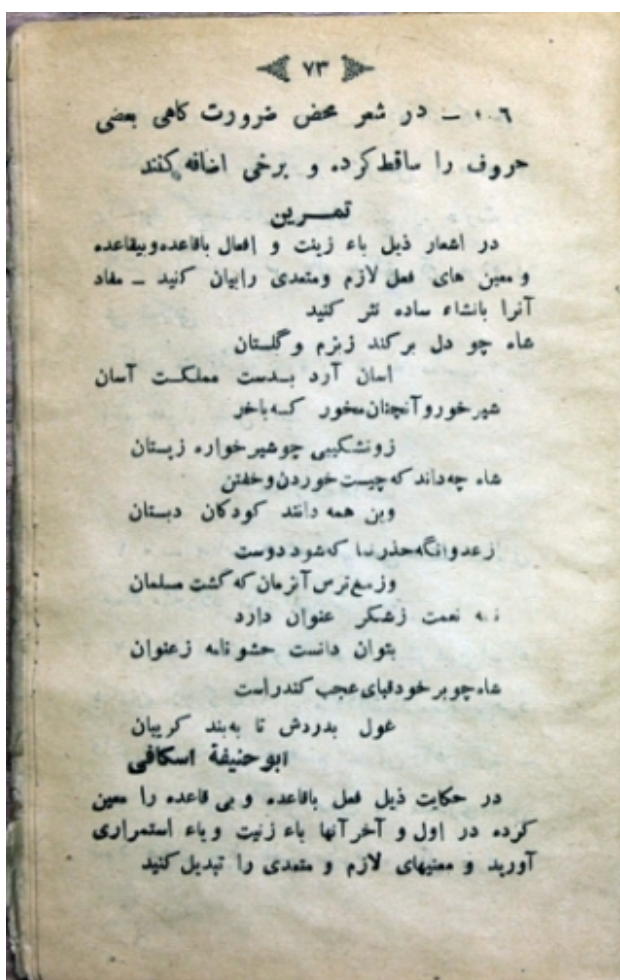 ۷۳
۱۰۶ – در شعر محض ضرورت کاهی بعضی
حروف را ساقط کرده و برخی اضافه کنند
تمـــرین
در اشعار ذیل باء زینت و افعال باقاعده وبیقاعده
و معین های فعل لازم ومتعدی رابیان کنید – مفاد
آنرا بانشاء ساده نثر کنید
شاه چو دل برکند زبزم و گلستان
اسان آرد بـدست مملکـت آسان
شیر خورو آنچنان مخور که باخر
زونشکیبی چو شیر خواره زپستان
شاه چه داند که چیست خوردن و خفتن
وین همه دانند کودکان دبستان
زعدو انگه حذر که شود دوست
وز مغ ترس آنزمان که گشت مسلمان
نعمت زشکر عنوان دارد
بتوان دانست حشو نامه زعنوان
شاه چو بر خود قبای عجب کند راست
غول بدردش تا به بند کریبان
ابو حنیفة اسکافی
در حکایت ذیل فعل باقاعده و بی قاعده را معین
کرده در اول و آخر آنها باء زنیت و یاء استمراری
آورید و معنیهای لازم و متعدی را تبدیل کنید